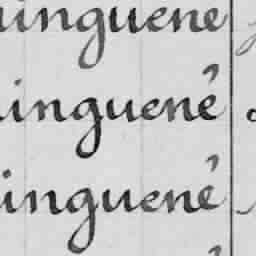 inguené
inguené
inguené